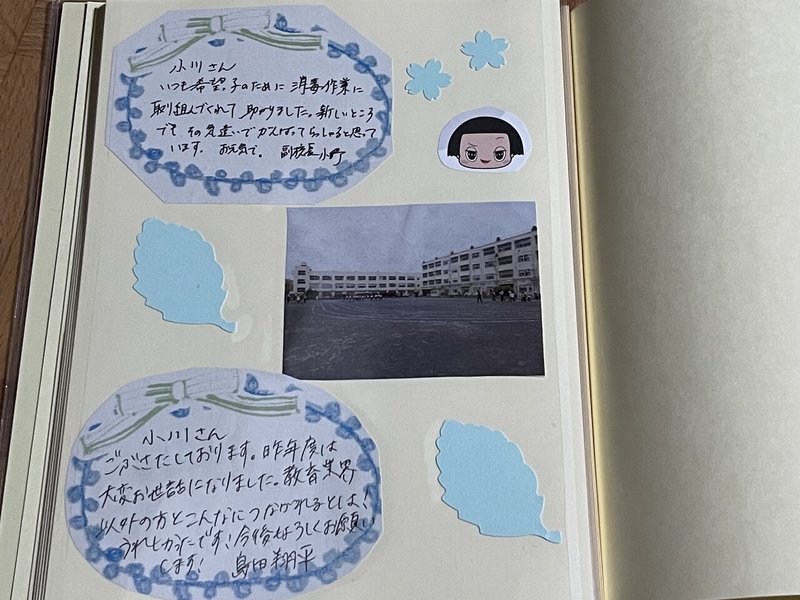 小川さん
いつも希望っ子のために消毒作業に
取り組んでくれて助かりました。新しいところ
でも その気遣いでがんばってらっしゃると思って
います。お元気で。 副校長 小野
小川さん
ごぶさたしております。昨年度は
大変お世話になりました。教育業界
以外の方とこんなにつながれるとは！
うれしかったです！今後もよろしくお願い
します！ 島田翔平